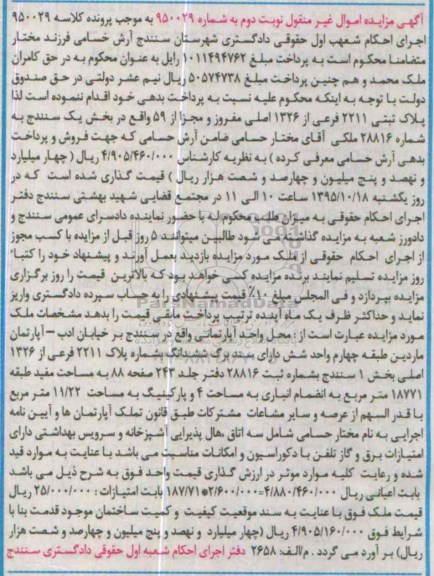 آگهی مزایده اموال غیر منقول نوبت دوم به شماره ۹۵۰۰۲۹ به موجب پرونده کلاسه ۹۵۰۰۲۹
اجرای احکام شعبه اول حقوقی دادگستری شهرستان سنندج آرش حسامی فرزند مختار
متضامنا محکوم است به پرداخت مبلغ ۱۰۱۱۴۹۴۷۶۲ رایل به عنوان محکوم به در حق کامران
ملک محمد و هم چنین پرداخت مبلغ ۵۰۵۷۴۷۳۸ ریال نیم عشر دولتی در حق صندوق
دولت با توجه به اینکه محکوم علیه نسبت به پرداخت بدهی خود اقدام ننموده است لذا
پلاک ثبتی ۲۲۱۱ فرعی از ۱۳۲۶ اصلی مفروز و مجزا از ۵۹ واقع در بخش یک سنندج به
شماره ۲۸۸۱۶ ملکی آقای مختار حسامی ضامن آرش حسامی که جهت فروش و پرداخت
بدهی آرش حسامی معرفی کرده ) به نظریه کارشناس ۴/۹۰۵/۴۶۰/۰۰۰ ریال ( چهار میلیارد
و نهصد و پنج میلیون و چهارصد و شصت هزار ریال ) قیمت گذاری شده است که در
روز یکشنبه ۱۳۹۵/۱۰/۱۸ ساعت ۱۰ الی ۱۱ در مجتمع قضایی شهید بهشتی سنندج دفتر
اجرای احکام حقوقی به میزان طلب محکوم له با حضور نماینده دادسرای عمومی سنندج و
دادورز شعبه به مزایده گذاشته می شود طالبین میتوانند ۵ روز قبل از مزایده با کسب مجوز
از اجرای احکام حقوقی از ملک مورد مزایده بازدید بعمل آورند و پیشنهاد خود را کتبا"
روز مزایده تسلیم نمایند برنده مزایده کسی خواهد بود که بالاترین قیمت را روز برگزاری
مزایده بپردازد و فی المجلس مبلغ ۱۰٪ قیمت پیشنهادی را به حساب سپرده دادگستری واریز
نماید و حداکثر ظرف یک ماه آینده ترتیب پرداخت مابقی قیمت را بدهد مشخصات ملک
مورد مزایده عبارت است از : محل واحد آپارتمانی واقع در سنندج بر خیابان ادب – آپارتمان
ماردین طبقه چهارم واحد شش دارای سند برگ ششدانگ بشماره پلاک ۲۲۱۱ فرعی از ۱۳۲۶
اصلی بخش ۱ سنندج بشماره ثبت ۲۸۸۱۶ دفتر جلد ۲۴۳ صفحه ۸۸ به مساحت مفید طبقه
۱۸۷۷۱ متر مربع به انضمام انباری به مساحت ۴ و پارکینیگ به مساحت ۱۱/۲۲ متر مربع
با قدر السهم از عرصه و سایر مشاعات مشترکات طبق قانون تملک آپارتمان ها و آیین نامه
اجرایی به نام مختار حسامی شامل سه اتاق ،هال پذیرایی آشپزخانه و سرویس بهداشتی دارای
امتیازات برق و گاز تلفن با دکوراسیون و امکانات مناسبت می باشد با عنایت به موارد قید
شده و رعایت کلیه موارد موثر در ارزش گذاری قیمت واحد فوق به شرح ذیل می باشد
بابت اعیانی ریال ۴/۸۸۰/۴۶۰/۰۰۰=۱۸۷/۷۱*۲/۶۰۰/۰۰۰ بابت امتیازات : ۲۵/۰۰۰/۰۰۰ ریال
قیمت ملک فوق با عنایت به سند موقعیت کیفیت و کمیت ساختمان موجود قدمت بنا با
شرایط فوق ۴/۹۰۵/۱۶۰/۰۰۰ ریال (چهار میلیارد و نهصد و پنج میلیون و چهارصد و شصت هزار
ریال) بر آورد می گردد . م/الف: ۲۶۵۸ دفتر اجرای احکام شعبه اول حقوقی دادگستری سنندج